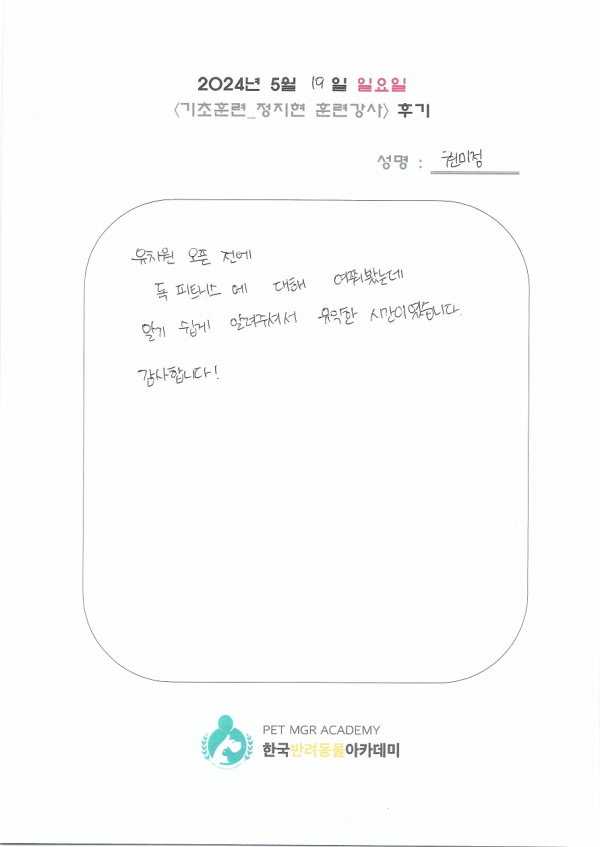 2024년 5월 19일 일요일
<기초훈련_정지현 훈련강사> 후기
성명 : 권미정
유치원 오픈 전에
독 피트니스 에 대해 여쭤봤는데
알기 쉽게 알려주셔서 유익한 시간이였습니다.
감사합니다!
PET MGR ACADEMY
한국반려동물아카데미